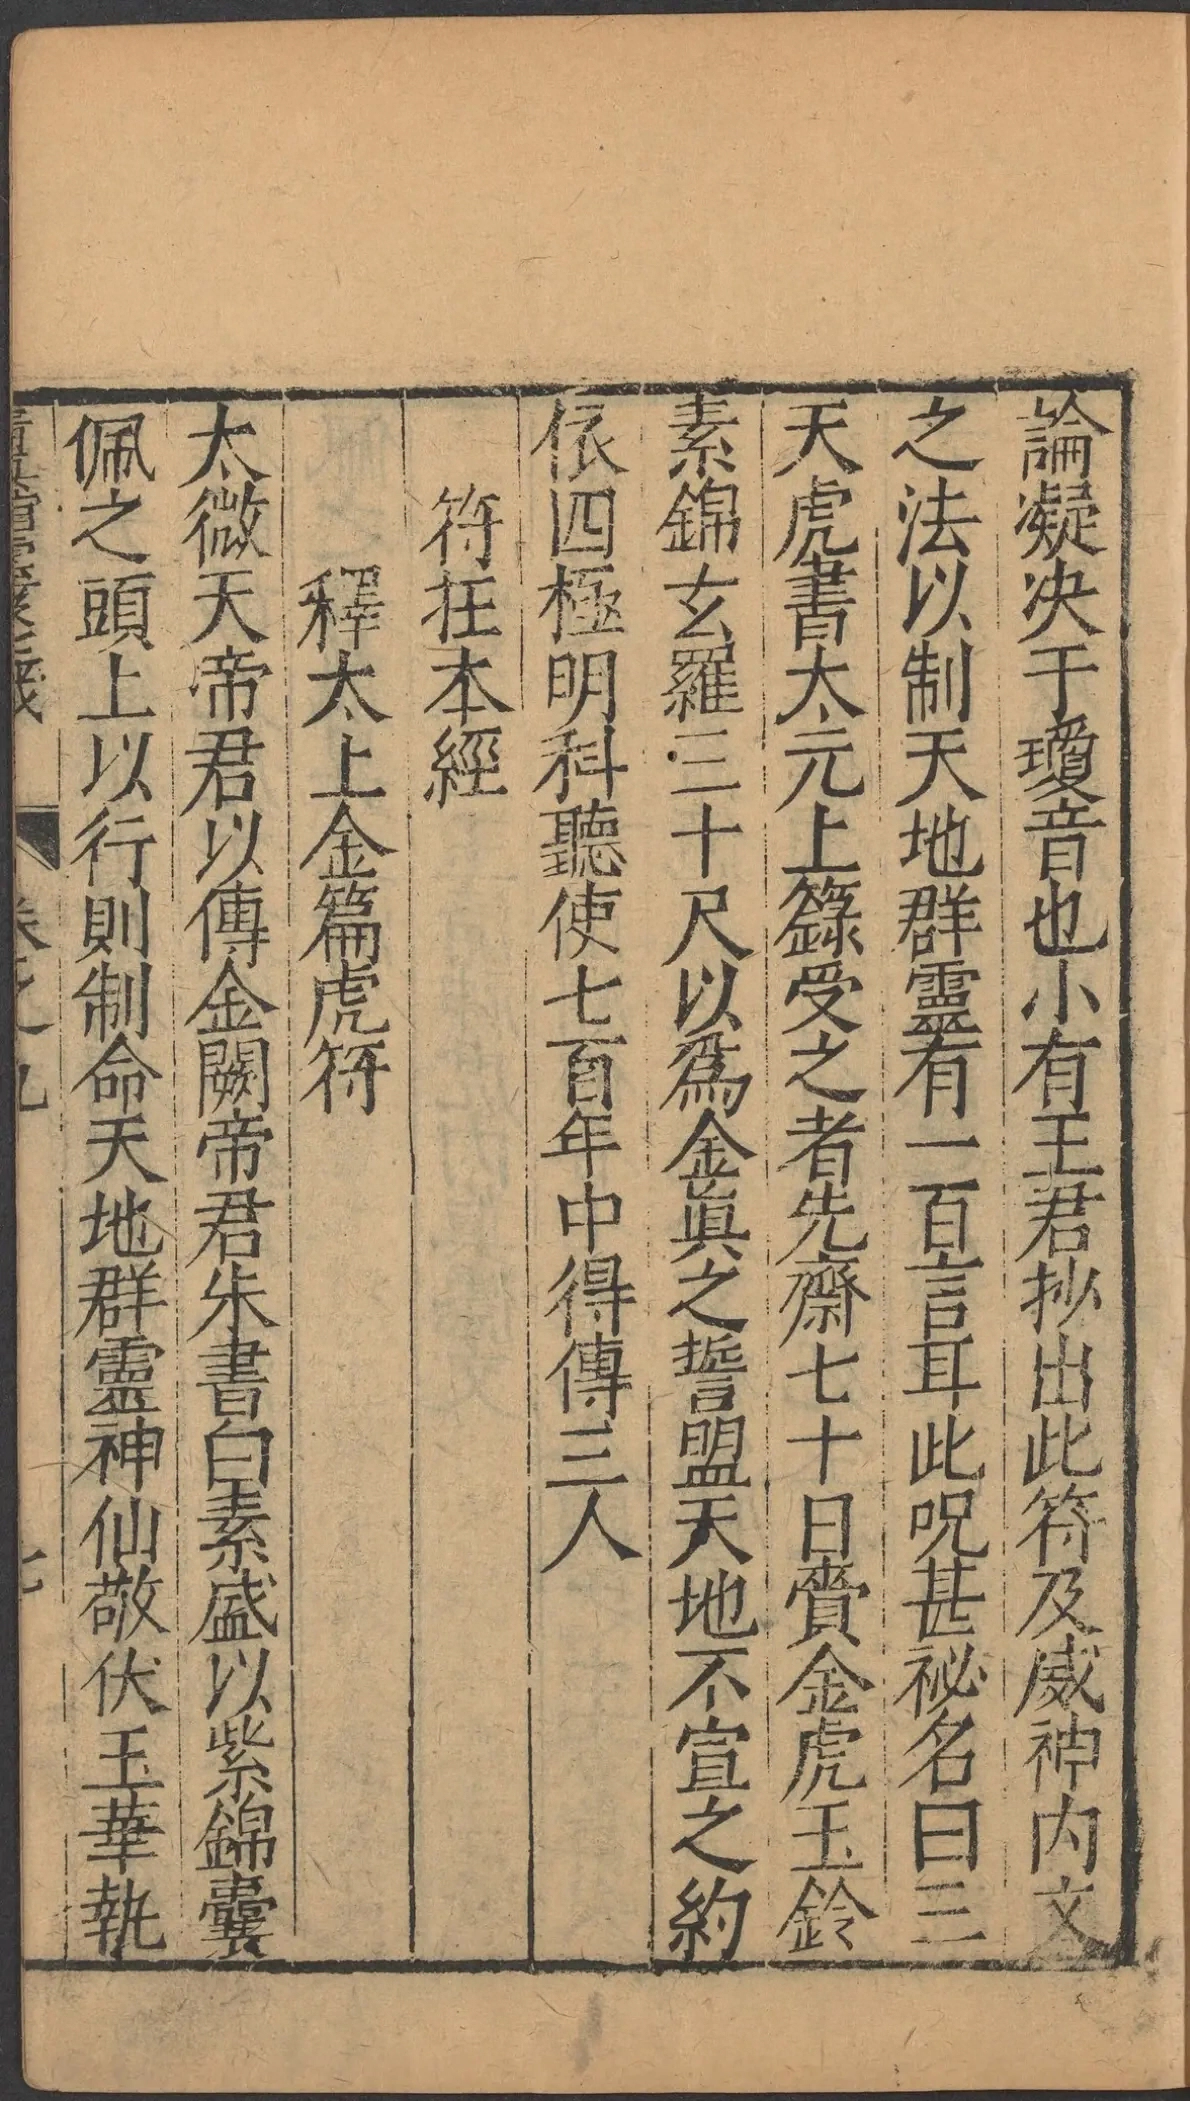 論凝决于瓊音也小有王君抄出此符及威神内文
之法以制天地群靈有一百言耳此呪甚祕名曰三
天虎書太元上籙受之者先齋七十日賫金虎玉鈴
素錦玄羅三十尺以爲金真之誓盟天地不宣之約
依四極明科聽使七百年中得傳三人
符在本經
釋太上金篇虎符
太微天帝君以傳金闕帝君朱書白素盛以紫錦囊
佩之頭上以行則制命天地群靈神仙敬伏玉華執
卷之九